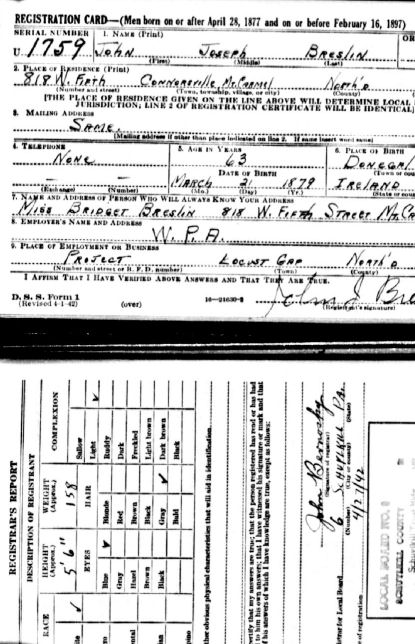 REGISTRATION CARD—(Men born on or after April 28, 1877 and on or before February 16, 1897)
SERIAL NUMBER 1. NAME (Print) OR
U 1759 John Joseph Breslin
(First) (Middle) (Last)
2. PLACE OF RESIDENCE (Print)
818 W. Fifth Connorsville, Mt. Carmel North'd
(Number and street) (Town, township, village, or city) (County)
[THE PLACE OF RESIDENCE GIVEN ON THE LINE ABOVE WILL DETERMINE LOCAL
JURISDICTION; LINE 2 OF REGISTRATION CERTIFICATE WILL BE IDENTICAL]
3. MAILING ADDRESS
Same.
[Mailing address if other than place indicated on line 2. If same insert word same]
4. TELEPHONE 5. AGE IN YEARS 6. PLACE OF BIRTH
None 63 Donegal
DATE OF BIRTH (Town or
— — March 21 1879 Ireland
(Exchange) (Number) (Mo.) (Day) (Yr.) (State or
7. NAME AND ADDRESS OF PERSON WHO WILL ALWAYS KNOW YOUR ADDRESS
Miss Bridget Breslin 818 W. Fifth Street Mt. Ca
8. EMPLOYER'S NAME AND ADDRESS
W. P. A.
9. PLACE OF EMPLOYMENT OR BUSINESS
Project Locust Gap North'd
(Number and street or R. F. D. number) (Town) (County)
I AFFIRM THAT I HAVE VERIFIED ABOVE ANSWERS AND THAT THEY ARE TRUE.
D. S. S. Form 1
(Revised 4-1-42) (over) 16—21630-2 John J Bre
(Registrant's signature)
REGISTRAR'S REPORT
DESCRIPTION OF REGISTRANT
RACE HEIGHT (Approx.) WEIGHT (Approx.) COMPLEXION
5' 6" 158 Sallow
EYES HAIR Light
Blue Blonde Ruddy
Gray Red Dark
Hazel Brown Freckled
Brown Black Light brown
Black Gray Dark brown
Bald Black
other obvious physical characteristics that will aid in identification.
certify that my answers are true; that the person registered has read or has had
to him his own answers; that I have witnessed his signature or mark and that
his answers of which I have knowledge are true, except as follows:
(Signature of registrar)
(Number) (City or county) (State)
4/27/42
for Local Board
of registration
LOCAL BOARD NO.
SCHUYLKILL COUNTY